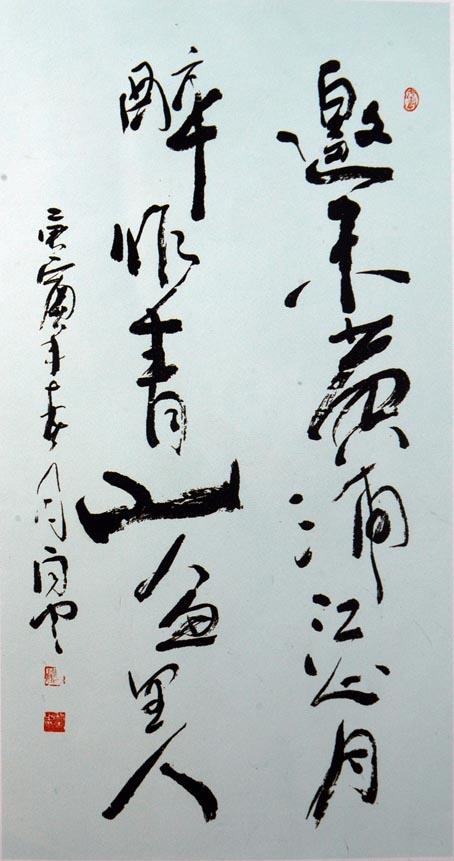 邀来黄浦江心月
醉作青山画里人
庚寅年春月白云